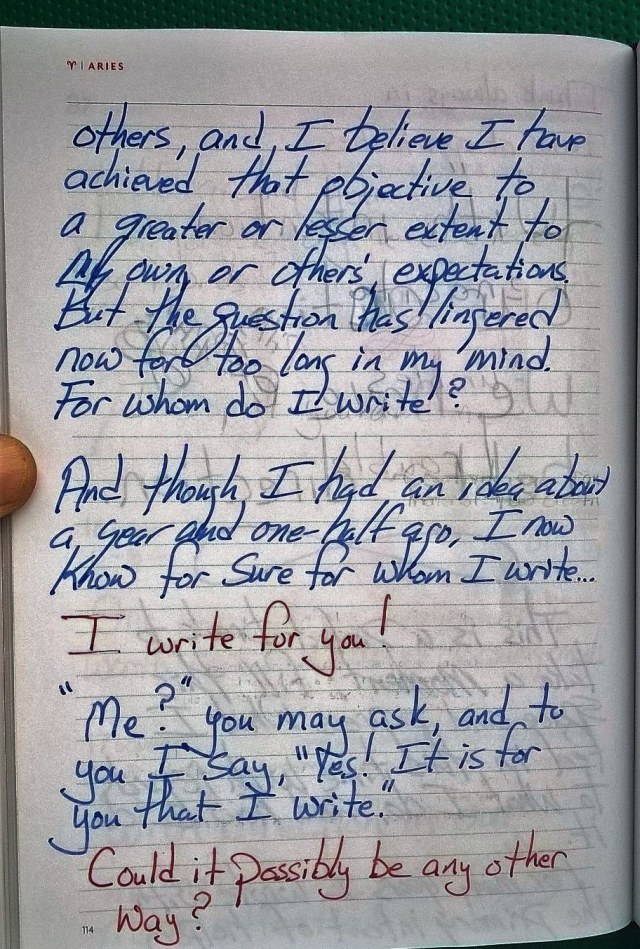 ♈ | ARIES
others, and, I believe I have
achieved that objective to
a greater or lesser extent to
My own or others', expectations.
But the question has lingered
now for too long in my mind.
For whom do I write?
And though I had an idea about
a year and one-half ago, I now
Know for Sure for whom I write...
I write for you!
"Me?" you may ask, and to
you I Say, "Yes! It is for
you that I write."
Could it possibly be any other
Way?
114